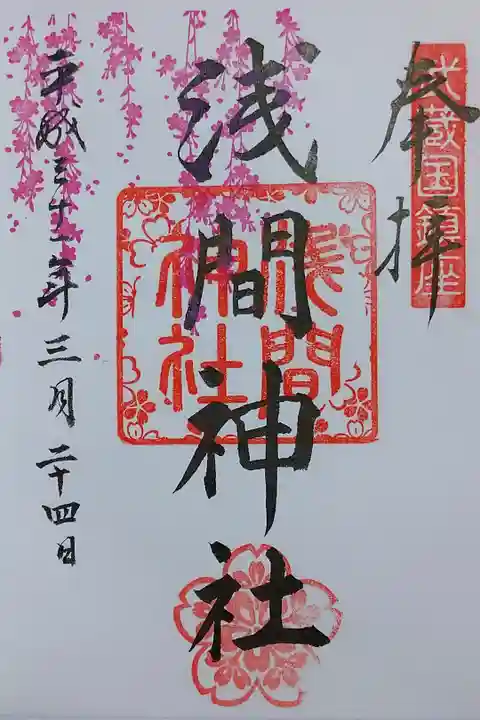 奉拝
武蔵国鎮座
浅間神社
浅間
神社
平成三十一年三月二十四日